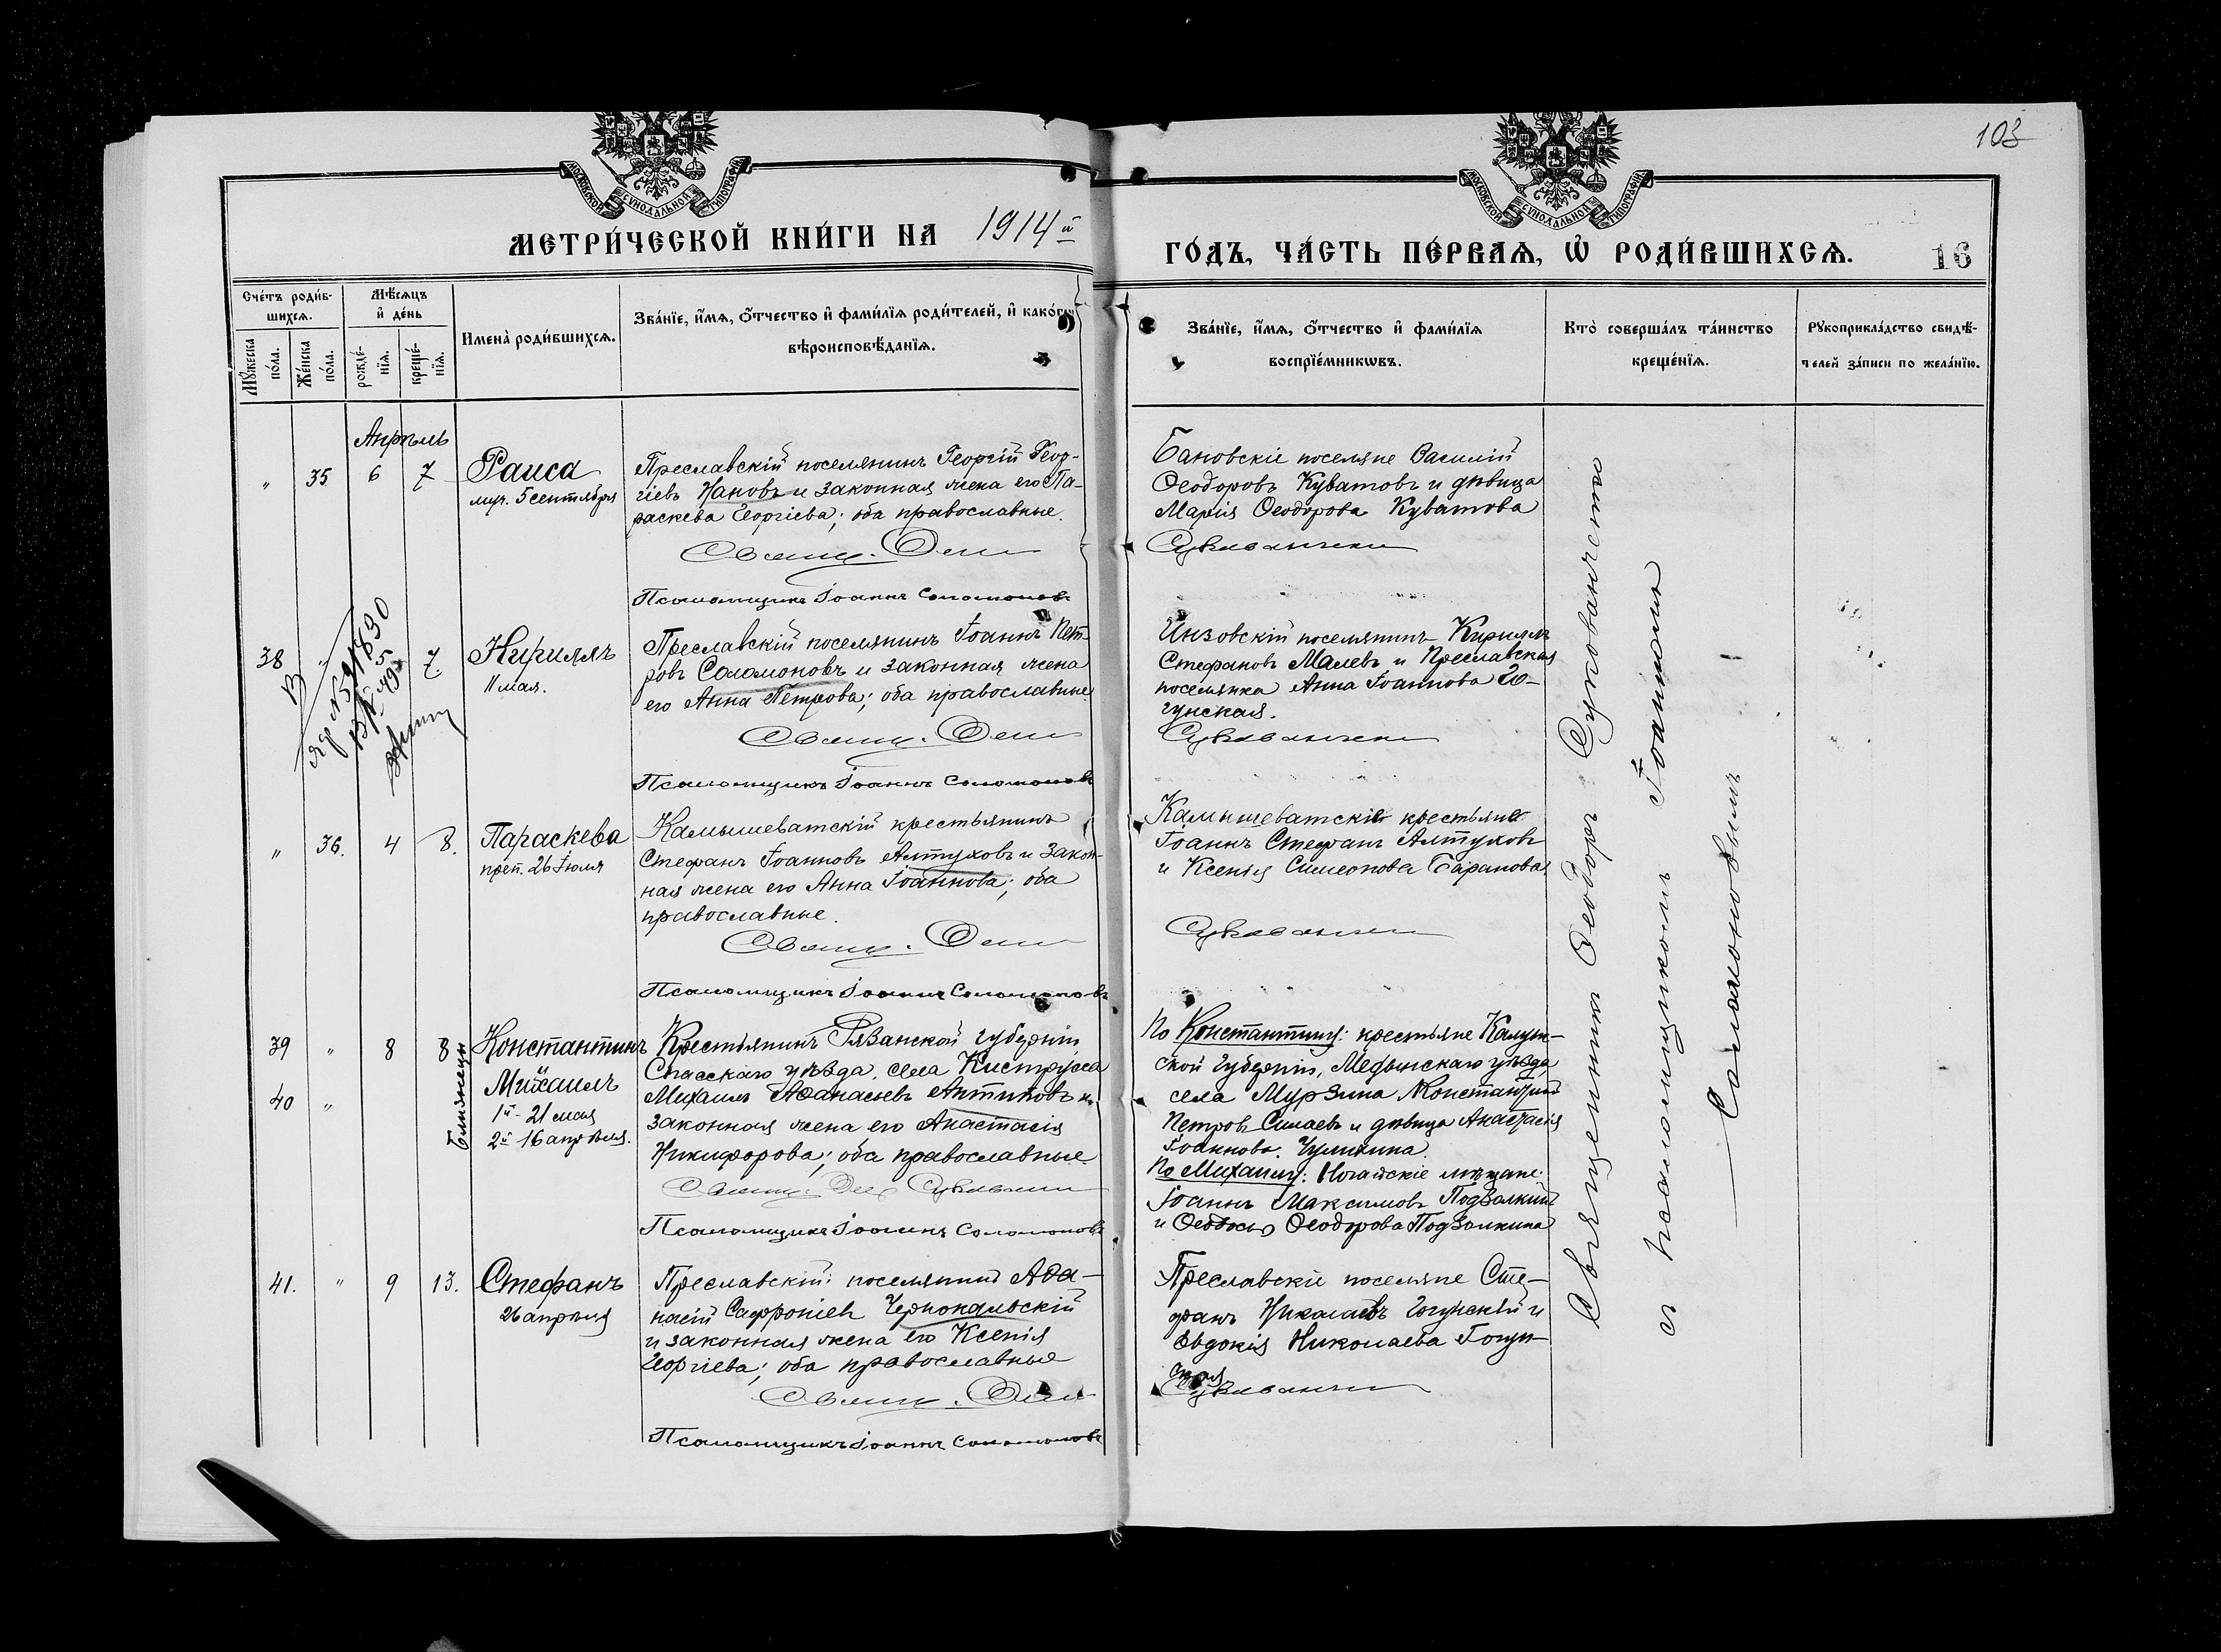 103
МОСКОВСКОЙ СѴНОДАЛЬНОЙ ТИПОГРАФІИ
МОСКОВСКОЙ СѴНОДАЛЬНОЙ ТИПОГРАФІИ
МЕТРИ́ЧЕСКОЙ КНИ́ГИ НА 1914й
ГО́ДЪ, ЧА́СТЬ ПЕ́РВАѦ, Ѽ РОДИ́ВШИХСѦ. 16
Сче́тъ роди́в-
шихсѧ.
Мѣ́сѧцъ
и҆ де́нь
Мꙋ́жеска
по́ла.
Же́нска
по́ла.
рожде́-
нїѧ.
креще́-
нїѧ.
Имена̀ роди́вшихсѧ.
Зва́нїе, и҆́мѧ, ѻ҆́тчество и҆ фами́лїѧ роди́телей, и҆ како́гѡ
вѣроисповѣ́данїѧ.
Зва́нїе, и҆́мѧ, ѻ҆́тчество и҆ фами́лїѧ
воспрїе́мникѡвъ.
Кто̀ соверша́лъ та́инство
креще́нїѧ.
Рꙋкоприкла́дство свидѣ́-
телей за́писи по жела́нїю.
Апрѣль
" 35. 6 7
Раиса
муч. 5 сентября
Преславскій поселянинъ Георгій Геор-
гіевъ Нановъ и законная жена его Па-
раскева Георгіева; оба православные.
Свящ. Ѳеод
Псаломщикъ Іоаннъ Соломоновъ
Бановскіе поселяне Василій
Ѳеодоровъ Куватовъ и дѣвица
Марія Ѳеодорова Куватова
Сукованченко
38 " 7.
Кириллъ
11 мая.
Преславскій поселянинъ Іоаннъ Пет-
ровъ Соломоновъ и законная жена
его Анна Петрова; оба православные
Свящ. Ѳеод
Псаломщикъ Іоаннъ Соломоновъ
Инзовскій поселянинъ Кириллъ
Стефановъ Малевъ и Преславская
поселянка Анна Іоаннова Го-
гунская.
Сукованченко
" 36. 4 8.
Параскева
преп. 26 Іюля
Камышеватскій крестьянинъ
Стефанъ Іоанновъ Алтуховъ и закон-
ная жена его Анна Іоаннова; оба
православные.
Свящ. Ѳеод
Псаломщикъ Іоаннъ Соломоновъ
Камышеватскіе крестьяне
Іоаннъ Стефанъ Алтуховъ
и Ксенія Симеонова Баранова.
Сукованченко
39 " 8 8
40 "
близнецы
Константинъ
Михаилъ
1й - 21 мая
2й 16 апрѣля.
Крестьянинъ Рязанской губерніи
Спасскаго уѣзда, села Киструсса
Михаилъ Аѳанасьевъ Антиповъ и
законная жена его Анастасія
Никифорова; оба православные.
Свящ. Ѳеод Сукованченко
Псаломщикъ Іоаннъ Соломоновъ
По Константину: крестьяне Калуж-
ской губерніи, Медынскаго уѣзда,
села Мурзина Константинъ
Петровъ Силаевъ и дѣвица Анастасія
Іоаннова Чулихина.
По Михаилу: Ногайскіе мѣщане:
Іоаннъ Максимовъ Подзалкинъ
и Ѳеодосья Ѳеодорова Подзалкина
41. " 9 13.
Стефанъ
26 апрѣля
Преславскій поселянинъ Аѳа-
насій Сафроніевъ Чернокальскій
и законная жена его Ксенія
Георгіева; оба православные
Свящ. Ѳеод
Псаломщикъ Іоаннъ Соломоновъ
Преславскіе поселяне Сте-
фанъ Николаевъ Гогунскій и
Евдокія Николаева Гогун-
ская
Сукованченко
Священникъ Ѳеодоръ Сукованченко
съ псаломщикомъ Іоанномъ
Соломоновымъ